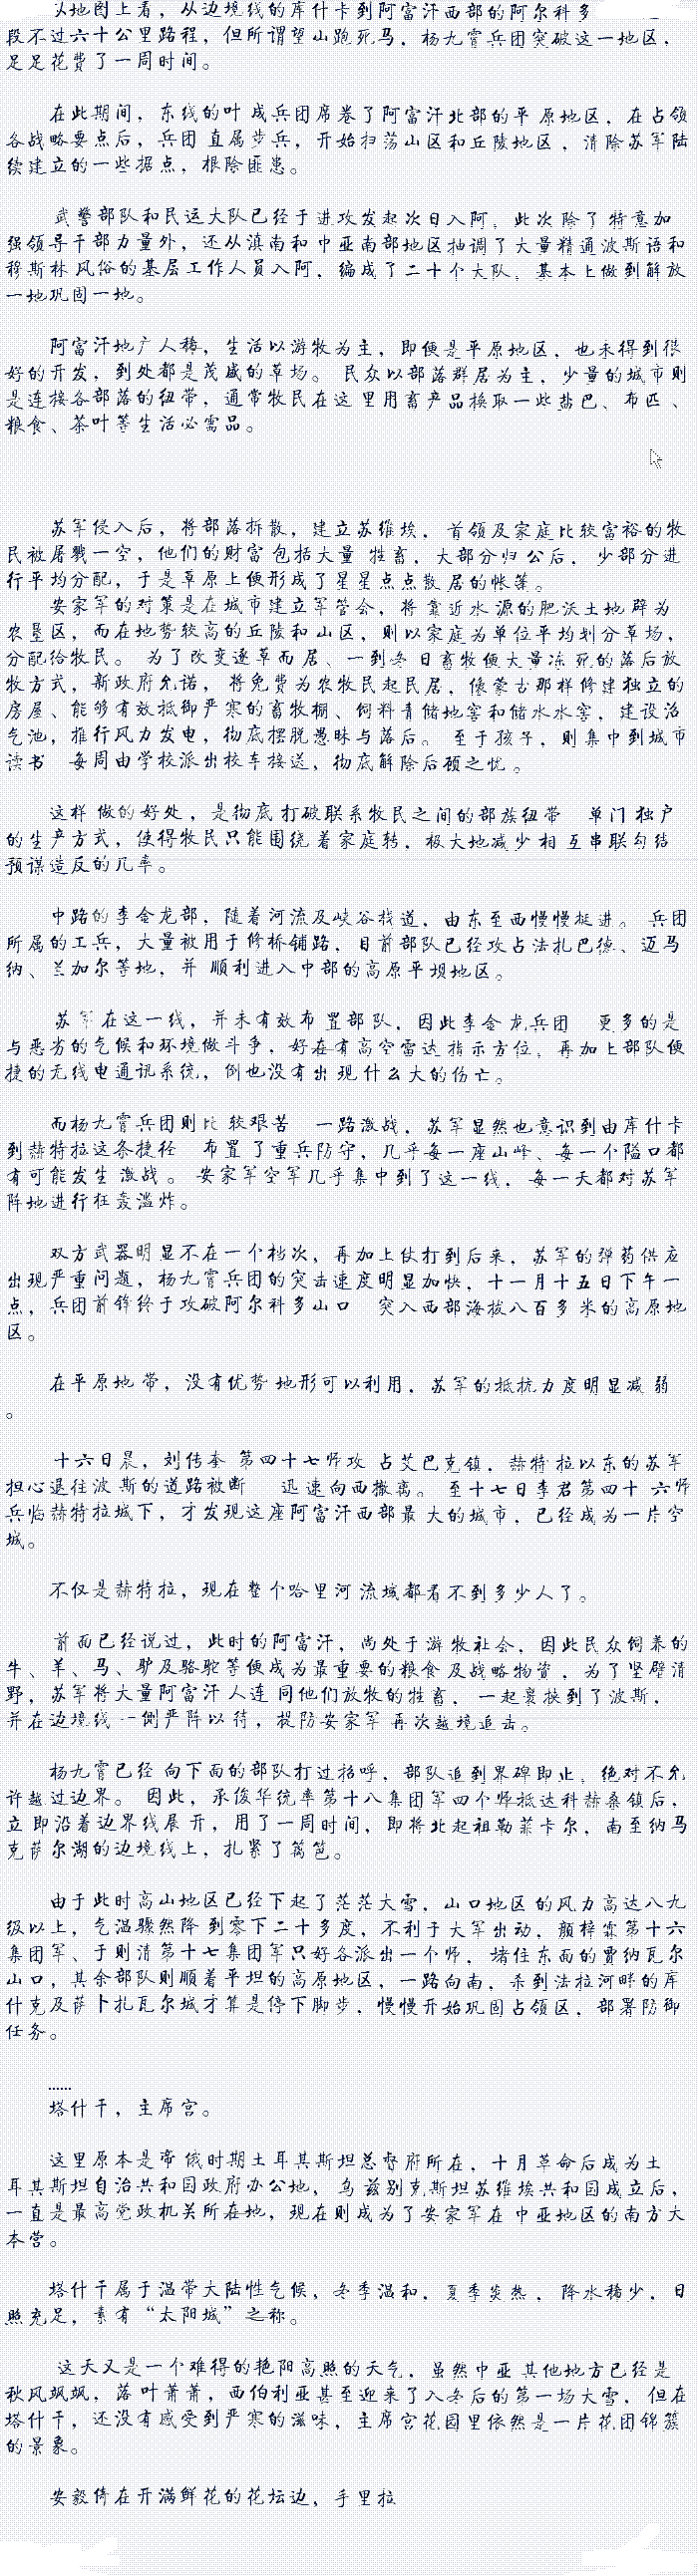 从地图上看，从边境线的库什卡到阿富汗西部的阿尔科多
段不过六十公里路程，但所谓望山跑死马，杨九霄兵团突破这一地区，
足足花费了一周时间。
在此期间，东线的叶成兵团席卷了阿富汗北部的平原地区，在占领
各战略要点后，兵团直属步兵，开始扫荡山区和丘陵地区，清除苏军陆
续建立的一些据点，根除匪患。
武警部队和民运大队已经于进攻发起次日入阿，此次除了特意加
强领导干部力量外，还从滇南和中亚南部地区抽调了大量精通波斯语和
穆斯林风俗的基层工作人员入阿，编成了二十个大队，基本上做到解放
一地巩固一地。
阿富汗地广人稀，生活以游牧为主，即便是平原地区，也未得到很
好的开发，到处都是茂盛的草场。民众以部落群居为主，少量的城市则
是连接各部落的纽带，通常牧民在这里用畜产品换取一些盐巴、布匹、
粮食、茶叶等生活必需品。
苏军侵入后，将部落拆散，建立苏维埃，首领及家庭比较富裕的牧
民被屠戮一空，他们的财富包括大量牲畜，大部分归公后，少部分进
行平均分配，于是草原上便形成了星星点点散居的帐篷。
安家军的对策是在城市建立军管会，将靠近水源的肥沃土地辟为
农垦区，而在地势较高的丘陵和山区，则以家庭为单位平均划分草场，
分配给牧民。为了改变逐草而居、一到冬日畜牧便大量冻死的落后放
牧方式，新政府允诺，将免费为农牧民起民居，像蒙古那样修建独立的
房屋、能够有效抵御严寒的畜牧棚、饲料青储地窖和储水水窖，建设沼
气池，推行风力发电，彻底摆脱愚昧与落后。至于孩子，则集中到城市
读书 每周由学校派出校车接送，彻底解除后顾之忧。
这样做的好处，是彻底打破联系牧民之间的部族纽带 单门独户
的生产方式，使得牧民只能围绕着家庭转，极大地减少相互串联勾结
预谋造反的几率。
中路的李金龙部，随着河流及峡谷栈道，由东至西慢慢挺进。兵团
所属的工兵，大量被用于修桥铺路，目前部队已经攻占法扎巴德、迈马
纳、兰加尔等地，并顺利进入中部的高原平坝地区。
苏军在这一线，并未有效布置部队，因此李金龙兵团 更多的是
与恶劣的气候和环境做斗争，好在有高空雷达指示方位，再加上部队便
捷的无线电通讯系统，倒也没有出现什么大的伤亡。
而杨九霄兵团则比较艰苦 一路激战，苏军显然也意识到由库什卡
到赫特拉这条捷径 布置了重兵防守，几乎每一座山峰、每一个隘口都
有可能发生激战。安家军空军几乎集中到了这一线，每一天都对苏军
阵地进行狂轰滥炸。
双方武器明显不在一个档次，再加上仗打到后来，苏军的弹药供应
出现严重问题，杨九霄兵团的突击速度明显加快，十一月十五日下午一
点，兵团前锋终于攻破阿尔科多山口 突入西部海拔八百多米的高原地
区。
在平原地带，没有优势地形可以利用，苏军的抵抗力度明显减弱
。
十六日晨，刘传奎第四十七师攻占艾巴克镇，赫特拉以东的苏军
担心退往波斯的道路被断 迅速向西撤离。至十七日李君第四十六师
兵临赫特拉城下，才发现这座阿富汗西部最大的城市，已经成为一片空
城。
不仅是赫特拉，现在整个哈里河流域都看不到多少人了。
前面已经说过，此时的阿富汗，尚处于游牧社会，因此民众饲养的
牛、羊、马、驴及骆驼等便成为最重要的粮食及战略物资，为了坚壁清
野，苏军将大量阿富汗人连同他们放牧的牲畜，一起裹挟到了波斯，
并在边境线一侧严阵以待，提防安家军再次越境追击。
杨九霄已经向下面的部队打过招呼，部队追到界碑即止，绝对不允
许越过边界。因此，承俊华统率第十八集团军四个师抵达科赫桑镇后，
立即沿着边界线展开，用了一周时间，即将北起祖勒菲卡尔，南至纳马
克萨尔湖的边境线上，扎紧了篱笆。
由于此时高山地区已经下起了茫茫大雪，山口地区的风力高达八九
级以上，气温骤然降到零下二十多度，不利于大军出动，颜梓霖第十六
集团军、于则清第十七集团军只好各派出一个师，堵住东面的贾纳瓦尔
山口，其余部队则顺着平坦的高原地区，一路向南，杀到法拉河畔的库
什克及萨卜扎瓦尔城才算是停下脚步，慢慢开始巩固占领区，部署防御
任务。
……
塔什干，主席宫。
这里原本是帝俄时期土耳其斯坦总督府所在，十月革命后成为土
耳其斯坦自治共和国政府办公地，乌兹别克斯坦苏维埃共和国成立后，
一直是最高党政机关所在地，现在则成为了安家军在中亚地区的南方大
本营。
塔什干属于温带大陆性气候，冬季温和，夏季炎热，降水稀少，日
照充足，素有“太阳城”之称。
这天又是一个难得的艳阳高照的天气，虽然中亚其他地方已经是
秋风飒飒，落叶萧萧，西伯利亚甚至迎来了入冬后的第一场大雪，但在
塔什干，还没有感受到严寒的滋味，主席宫花园里依然是一片花团锦簇
的景象。
安毅倚在开满鲜花的花坛边，手里拉